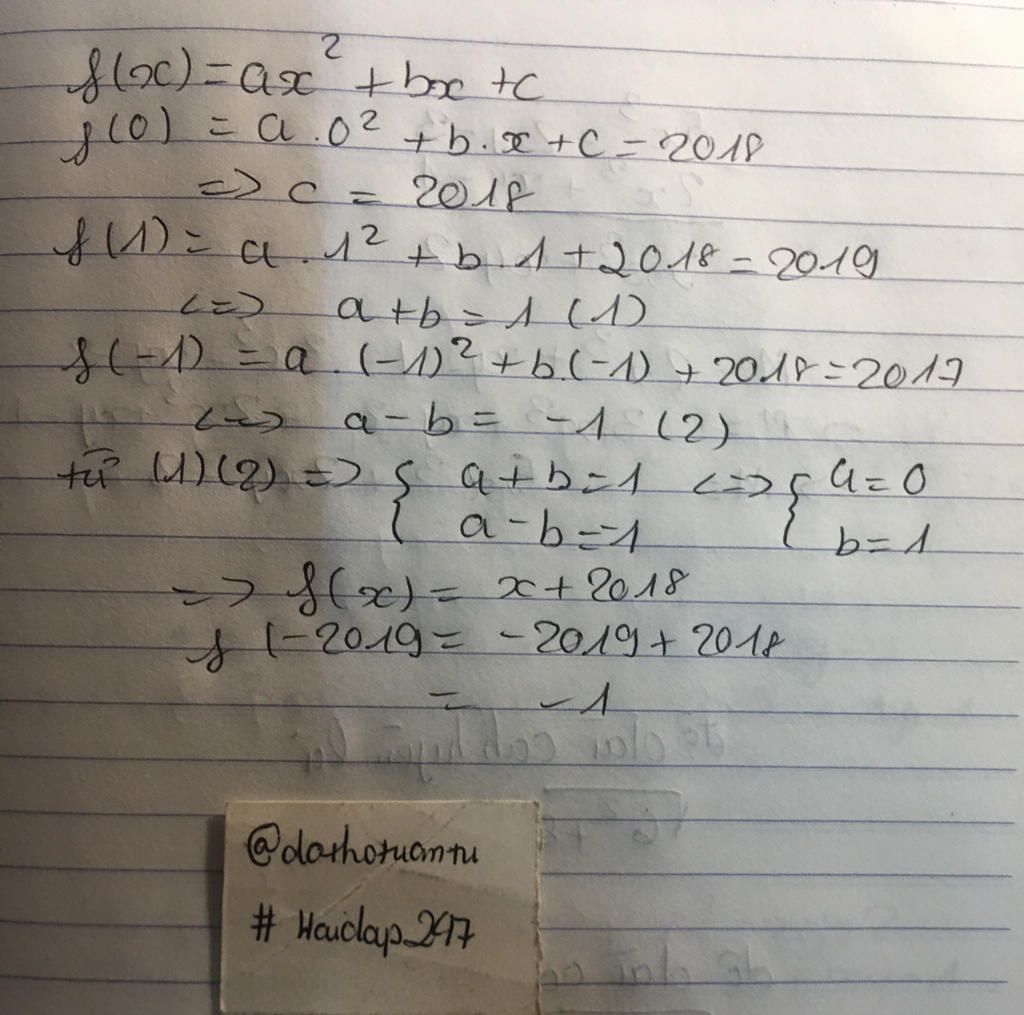 f(x) = ax² + bx + c
f(0) = a . 0² + b . x + c = 2018
=> c = 2018
f(1) = a . 1² + b . 1 + 2018 = 2019
<=> a + b = 1 (1)
f(-1) = a . (-1)² + b.(-1) + 2018 = 2017
<=> a - b = -1 (2)
từ (1)(2) => { a + b = 1 <=> { a = 0
a - b = -1 b = 1
=> f(x) = x + 2018
f(-2019 = -2019 + 2018
= -1
@dathotuantu
# Hoidap_247